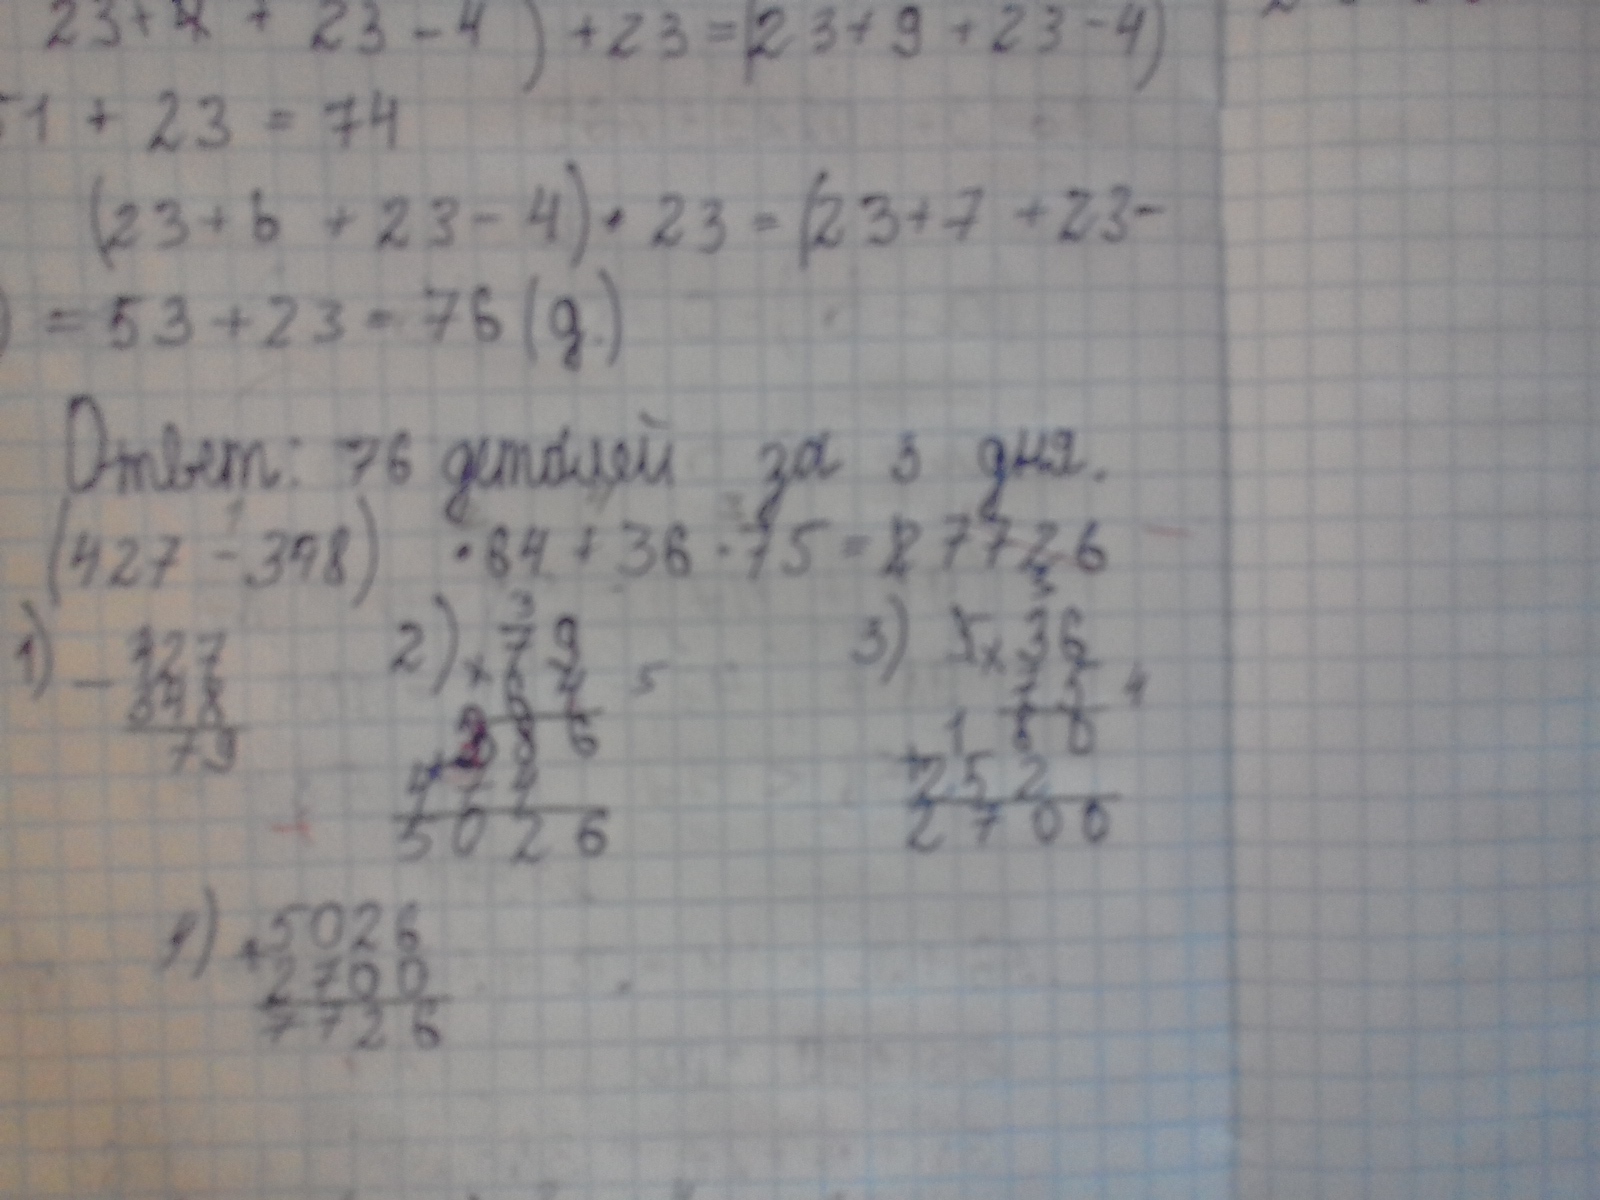 23+4 + 23-4) +23=(23+9+23-4)
51 + 23 = 74
(23+6 + 23-4)·23=(23+7 +23-
)=53+23=76(д.)
Ответ: 76 деталей за 3 дня.
(427-348) ·64+36·75=27726
1) 2) 3 3) 3
- 427 × 79 × 36
348 64 5 75 4
79 + 1 80
474 + 252
5026 2700
4) + 5026
2700
7726